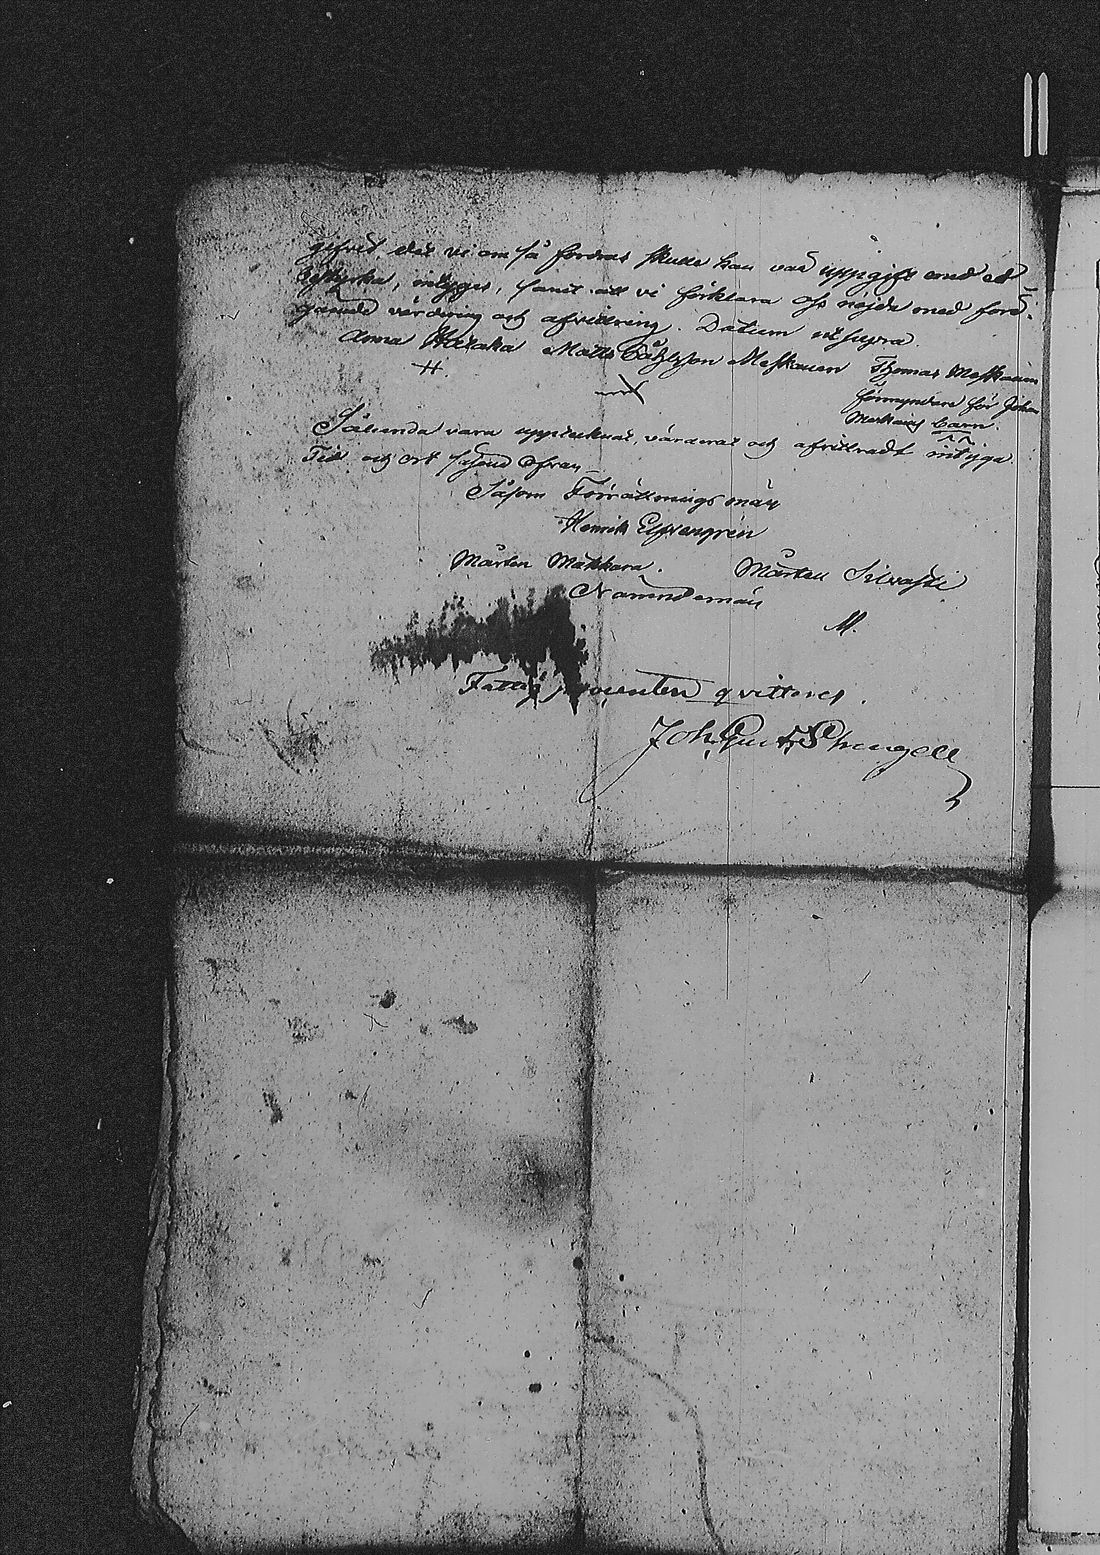 gifvit, det vi om så fordras skulle kan vår uppgift med ed
bestyrka, intygges, samt att vi förklara oss nöjda med före-
gående värdering och afvittring. Datum utsupra.
Anna Matts Meskanen Thomas Meskanen
förmyndare för Johan
barn.
Sålunda vara upptecknat, värderat och afvittradt intyga.
Tid och ort såsom ofvan
Såsom Förrättningsmän
Henrik
Mårten Makkara. Mårten Silvasti
Nämndemän
M.
Fattigprocenten qvitteras.
Joh. Gust.